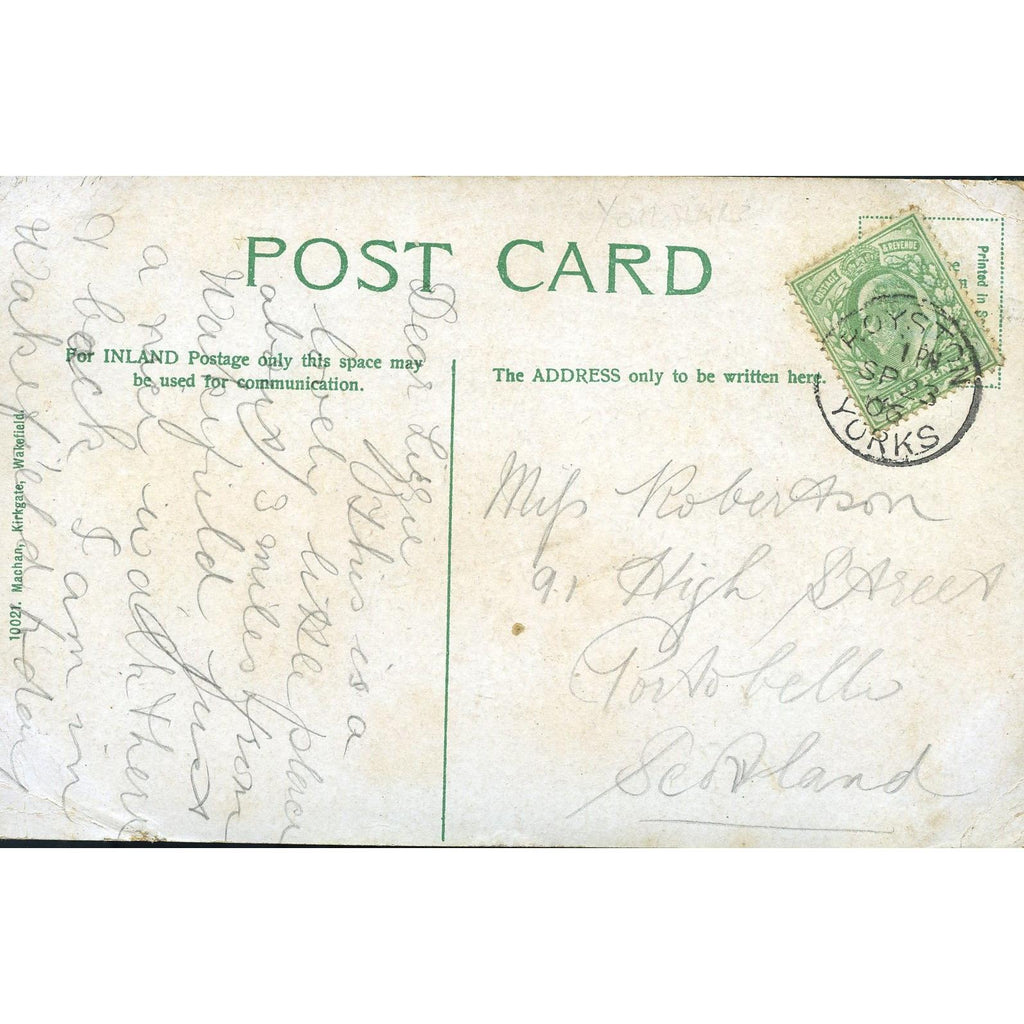 Yorkshire
POST CARD
For INLAND Postage only this space may
be used for communication.
The ADDRESS only to be written here.
Printed in S
POSTAGE & REVENUE
ROYSTON
1 PM
SP 23
06
YORKS
10021. Machan, Kirkgate, Wakefield.
Dear Lizzie
This is a
lovely little place
about 3 miles from
Wakefield just
a nice walk there
& back I am in
Wakefield today
Miss Robertson
91 High Street
Portobello
Scotland